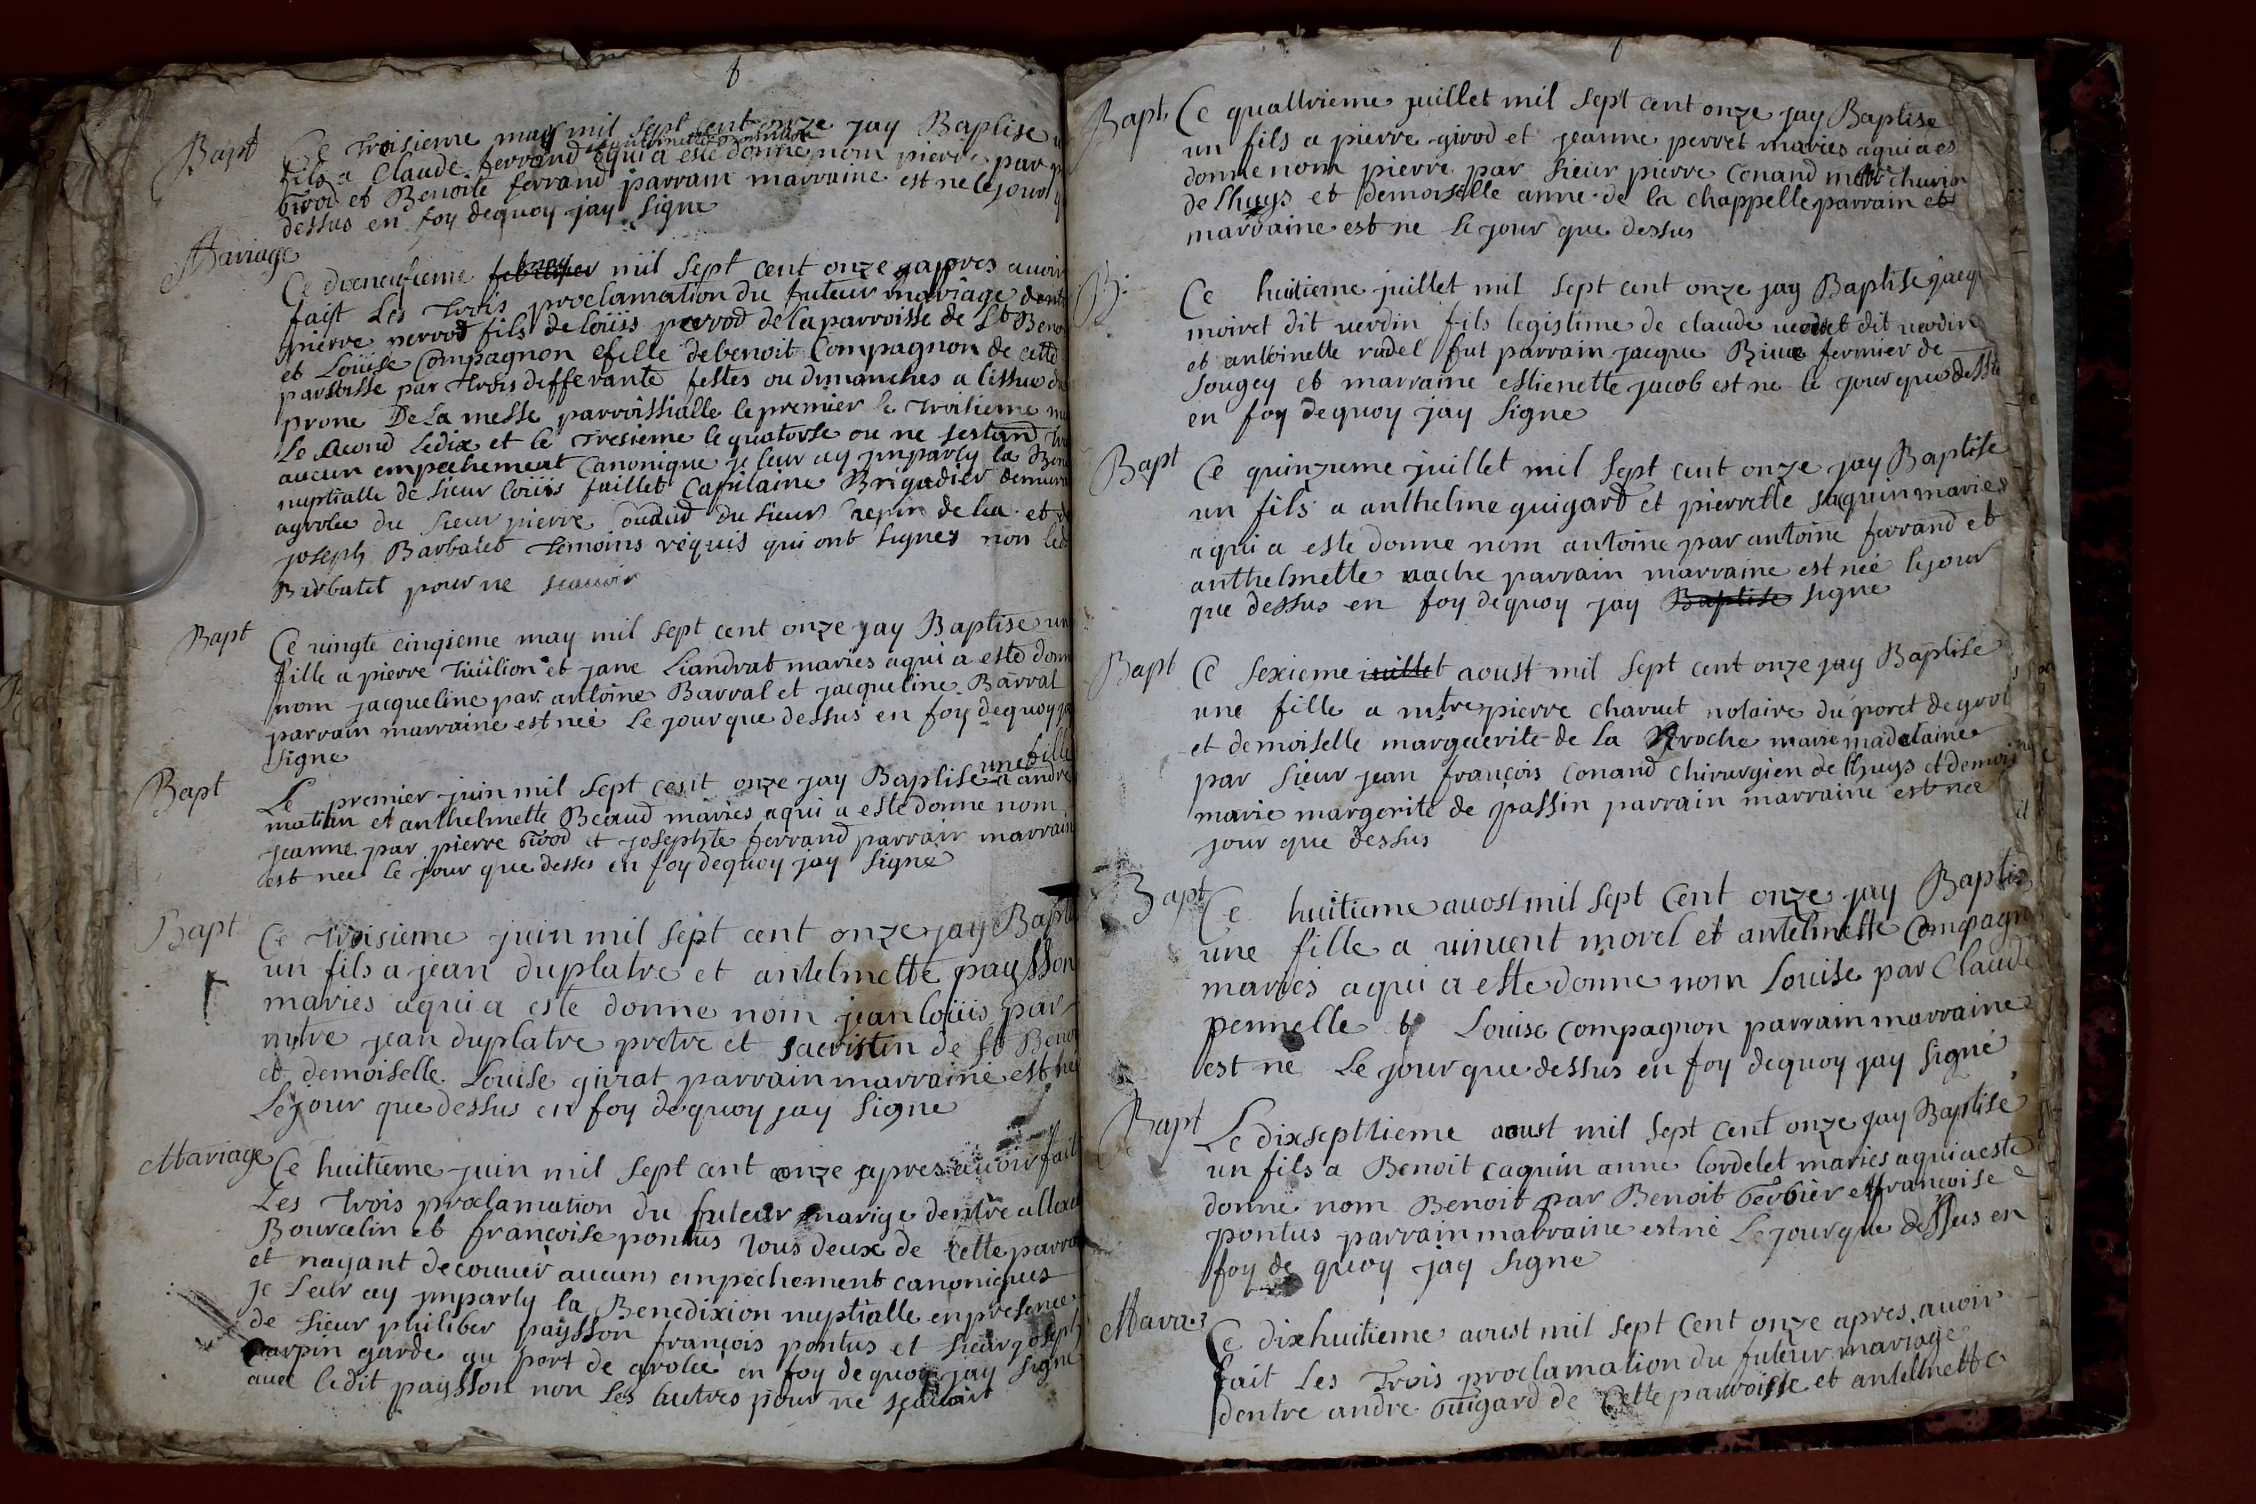 Bapt
Ce troisieme may mil sept cent onze jay Baptise
fils a Claude ferrand aqui a este donne nom pierre par
Girod et Benoite ferrand parrain marraine est ne le jour
dessus en foy dequoy jay signe
Mariage
Ce dixneufieme may mil sept cent onze appres avoir
fait les trois proclamation du futeur mariage dent
pierre perrod fils de loüis perrod de la parroisse de St Beno
et Loüise Compagnon efille de benoit Compagnon de cette
parroisse par trois differante festes ou dimanches a lissue d
prone De la messe parroissialle le premier le troisieme
le second le dix et le tresieme le quatorse ou ne sestand
aucun empechement Canonique je leur ay jmparty la Bene
nuptialle de sieur loüis faillet Capitaine Brigadier demeur
agrolee du sieur pierre du sieur et
joseph Barbatet temoins requis qui ont signes non led
Barbatet pour ne scauoir
Bapt
Ce uingte cinqieme may mil sept cent onze jay Baptise un
fille a pierre et jane Liandrat maries aqui a este donn
nom jacqueline par antoine Barral et jacqueline Barral
parrain marraine est neé le jour que dessus en foy dequoy
signe
Bapt
une fille
Le premier juin mil sept cent onze jay Baptise a andre
matian et anthelmette Beaud maries aqui a este donne nom
jeanne par pierre Girod et josephte ferrand parrain marrain
est nee le jour que desses en foy dequoy jay signé
Bapt
Ce troisieme juin mil sept cent onze jay Bapt
un fils a jean duplatre et antelmette paysson
maries aqui a este donne nom jean loüis par
mtre jean duplatre pretre et sacristin de St Beno
et demoiselle Louise givrat parrain marraine est ne
le jour que dessus en foy dequoy jay signe
Mariage
Ce huitieme juin mil sept cent onze apres avoir fait
Les trois proclamation du futeur marige dentre
Bourcelin et françoise pontus tous deux de cette parro
et nayant decouuer aucuns empechement canoniques
je leur ay jmparty la Benedixion nuptialle en presence
de sieur philiber paysson françois pontus et sieur joseph
Carpin garde au port de grolee en foy de quoy jay signe
auec ledit paysson non les autres pour ne sçauoir
Bapt
Ce quattrieme juillet mil sept cent onze jay Baptise
un fils a pierre girod et jeanne perret maries aqui a es
donne nom pierre par sieur pierre Conand mtre chirur
de lhuys et demoiselle anne de la chappelle parrain et
marraine est ne le jour que dessus
B:
Ce huitieme juillet mil sept cent onze jay Baptise jacq
moiret dit uerdin fils legistime de claude dit uerdin
et antoinette radel fut parrain jacque fermier de
sougey et marraine estienette jacob est ne le jour que dess
en foy dequoy jay signe
Bapt
Ce quinzieme juillet mil sept cent onze jay Baptise
un fils a anthelme guigard et pierrette jaquin maries
aqui a este donne nom antoine par antoine ferrand et
anthelmette uache parrain marraine est neé le jour
que dessus en foy dequoy jay Baptise signe
Bapt
Ce sexieme juillet aoust mil sept cent onze jay Baptise
une fille a mtre pierre charuet notaire du poret de grol
et demoiselle marguerite de la Roche marie madelaine
par sieur jean françois Conand chirurgien de lhuys et demoi
marie margerite de passin parrain marraine est nee
jour que dessus
Bapt
Ce huitieme auost mil sept cent onze jay Baptis
une fille a uincent morel et antelmette Compagn
maries aqui a este donne nom Louise par Claude
pennelle et Louise compagnon parrain marraine
est ne le jour que dessus en foy dequoy jay signé
Bapt
Le dixsepttieme aoust mil sept cent onze jay Baptise
un fils a Benoit caquin anne cordelet maries aqui a este
donne nom Benoit par Benoit Gerbier et francoise
pontus parrain marraine est ne le jour que dessus en
foy de quoy jay signe
Marra:
Ce dixhuitieme aoust mil sept cent onze apres avoir
fait les trois proclamation du futeur mariage
dentre andre Guigard de cette parroisse et antelmette